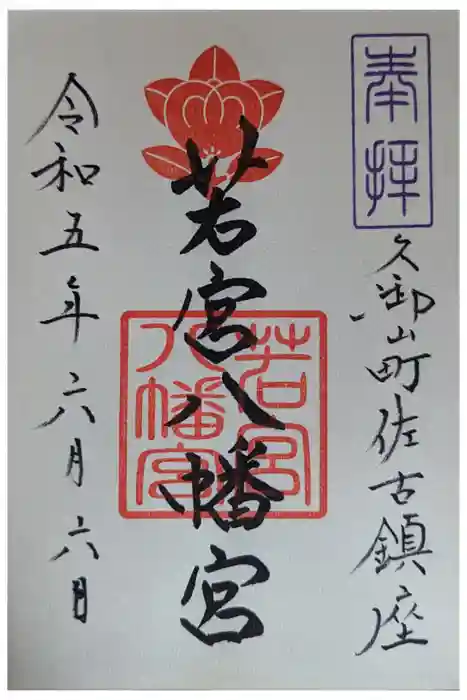 奉拝
久御山町佐古鎮座
若宮八幡宮
若宮
八幡宮
令和五年六月六日